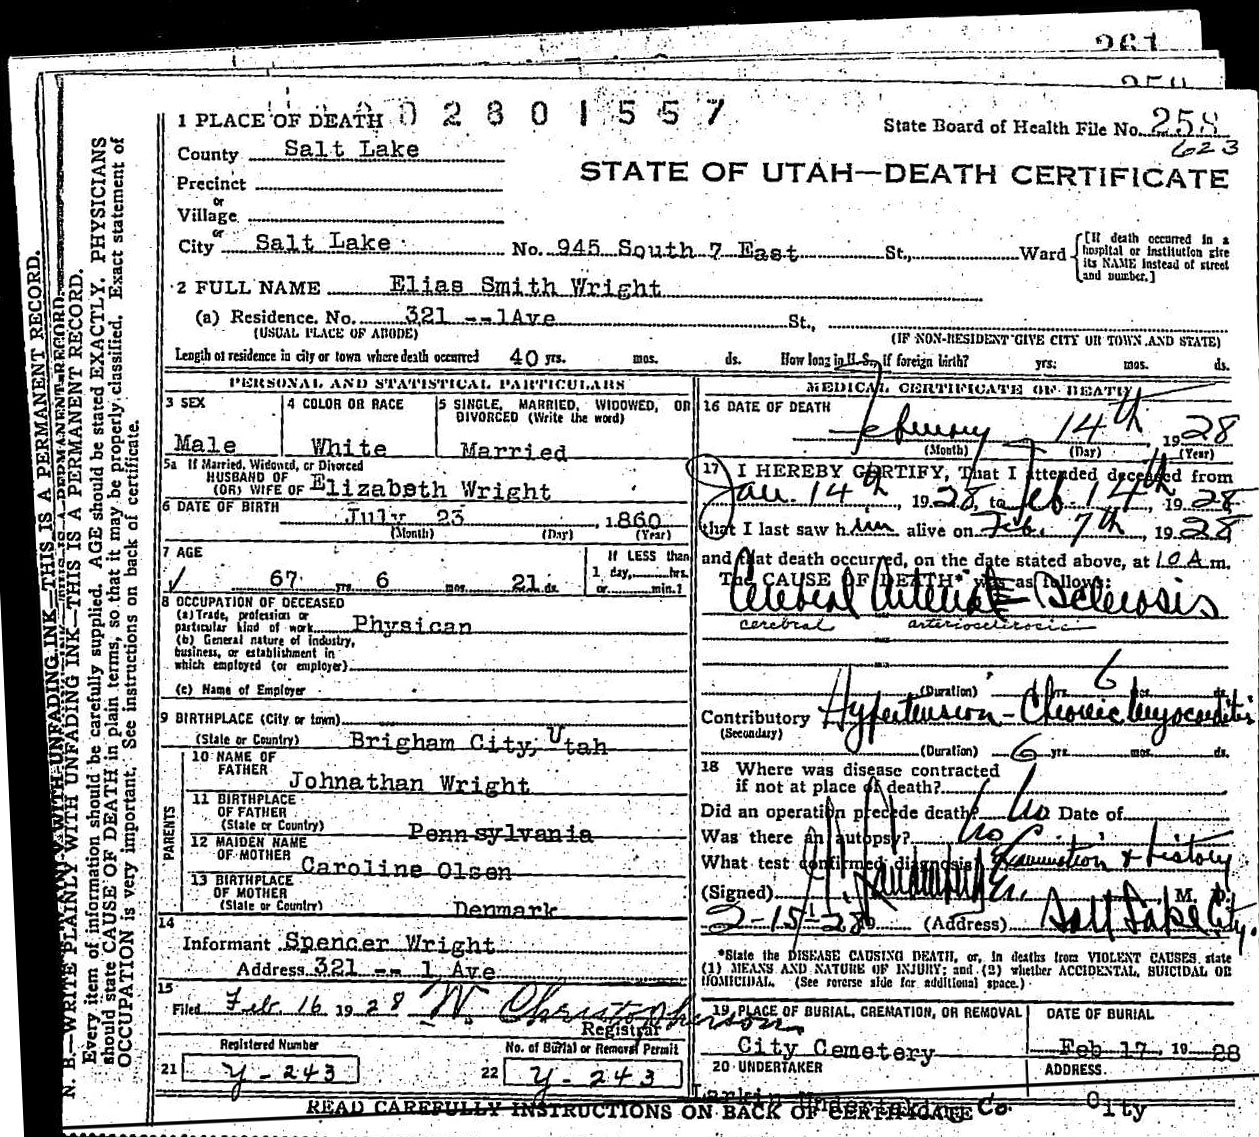 261
259
1 PLACE OF DEATH 002801557
State Board of Health File No. 258
623
County Salt Lake
STATE OF UTAH—DEATH CERTIFICATE
Precinct
or
Village
or
City Salt Lake No. 945 South 7 East St., Ward [If death occurred in a hospital or institution give its NAME instead of street and number.]
2 FULL NAME Elias Smith Wright
(a) Residence. No. 321 --1Ave St.,
(USUAL PLACE OF ABODE) (IF NON-RESIDENT GIVE CITY OR TOWN AND STATE)
Length of residence in city or town where death occurred 40 yrs. mos. ds. How long in U. S., If foreign birth? yrs. mos. ds.
PERSONAL AND STATISTICAL PARTICULARS
3 SEX
Male
4 COLOR OR RACE
White
5 SINGLE, MARRIED, WIDOWED, OR
DIVORCED (Write the word)
Married
5a If Married, Widowed, or Divorced
HUSBAND OF
(OR) WIFE OF Elizabeth Wright
6 DATE OF BIRTH July 23, 1860
(Month) (Day) (Year)
7 AGE
67 yrs. 6 mos. 21 ds.
If LESS than
1 day, hrs.
or min.?
8 OCCUPATION OF DECEASED
(a) Trade, profession or
particular kind of work Physican
(b) General nature of industry,
business, or establishment in
which employed (or employer)
(c) Name of Employer
9 BIRTHPLACE (City or town)
(State or Country) Brigham City, Utah
PARENTS
10 NAME OF
FATHER
Johnathan Wright
11 BIRTHPLACE
OF FATHER
(State or Country) Pennsylvania
12 MAIDEN NAME
OF MOTHER
Caroline Olsen
13 BIRTHPLACE
OF MOTHER
(State or Country) Denmark
14
Informant Spencer Wright
Address 321 -- 1 Ave
15
Filed Feb. 16 1928 W. Christopherson
Registrar
Registered Number
21 Y-243
No. of Burial or Removal Permit
22 Y-243
MEDICAL CERTIFICATE OF DEATH
16 DATE OF DEATH
February 14th 1928
(Month) (Day) (Year)
17 I HEREBY CERTIFY, That I attended deceased from
Jan. 14th, 1928, to Feb 14th, 1928
that I last saw him alive on Feb. 7th, 1928
and that death occurred, on the date stated above, at 10 A m.
The CAUSE OF DEATH* was as follows:
Cerebral Arterial-Sclerosis
cerebral arteriosclerosis
(Duration) yrs. 6 mos. ds.
Contributory Hypertension - Chronic Myocarditis
(Secondary)
(Duration) 6 yrs. mos. ds.
18 Where was disease contracted
if not at place of death?
Did an operation precede death? No Date of
Was there an autopsy? No
What test confirmed diagnosis Examination & History
(Signed) M. D.
2-15-28 (Address) Salt Lake City.
*State the DISEASE CAUSING DEATH, or, in deaths from VIOLENT CAUSES, state
(1) MEANS AND NATURE OF INJURY; and (2) whether ACCIDENTAL, SUICIDAL OR
HOMICIDAL. (See reverse side for additional space.)
19 PLACE OF BURIAL, CREMATION, OR REMOVAL
City Cemetery
DATE OF BURIAL
Feb 17, 1928
20 UNDERTAKER
Larkin Undertaking Co.
ADDRESS
City
READ CAREFULLY INSTRUCTIONS ON BACK OF CERTIFICATE
N. B.—WRITE PLAINLY WITH UNFADING INK—THIS IS A PERMANENT RECORD.
Every item of information should be carefully supplied. AGE should be stated EXACTLY. PHYSICIANS
should state CAUSE OF DEATH in plain terms, so that it may be properly classified. Exact statement of
OCCUPATION is very important. See instructions on back of certificate.